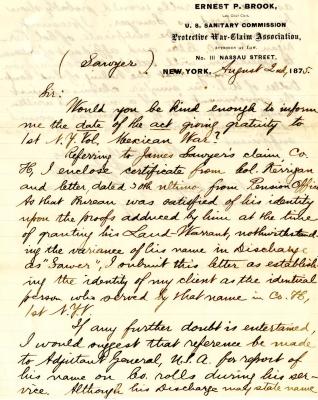 ERNEST P. BROOK,
U. S. SANITARY COMMISSION
Protective War-Claim Association,
ATTORNEY AT LAW,
No. 111 NASSAU STREET,
(Sawyer)
NEW-YORK, August 2nd, 1875.
Sir:
Would you be kind enough to inform
me the date of the act giving gratuity to
1st N.Y. Vol, Mexican War?
Referring to James Sawyer's claim, Co.
H, I enclose certificate from Col. Kerrigan
and letter dated 30th ultimo, from Pension Office
As that Bureau was satisfied of his identity
upon the proofs adduced by him at the time
of granting his Land-Warrant, notwithstand-
ing the variance of his name in Discharge
as "Sawer", I submit this letter as establish-
ing the identity of my client as the identical
person who served by that name in Co. H,
1st N.Y.V.
If any further doubt is entertained,
I would suggest that reference be made
to Adjutant General, U.S.A. for report of
his name on Co. rolls during his ser-
vice. Although his Discharge may state name